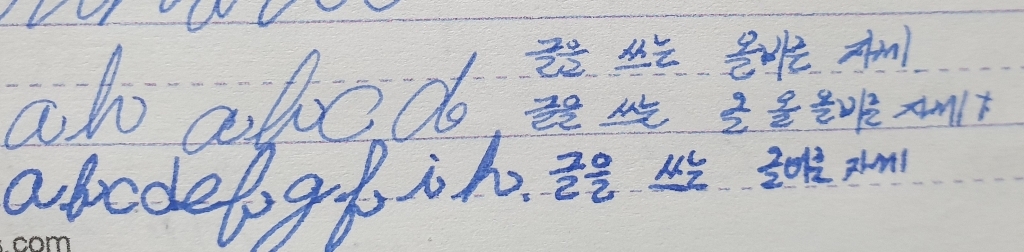 ab abcd 글을 쓰는 올바른 자세
글을 쓰는 글 올 올바른 자세
abcdefgfih. 글을 쓰는 글바른 자세
s.com